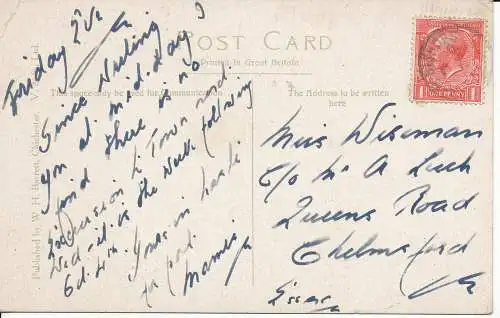 POST CARD
Printed in Great Britain
This space may be used for Communication
The Address to be written
here.
Published by W. H. Barrett, Chichester.
Friday
Since writing
you at mid.day I
find there is no
Excursion to Town next
Wed - it is the week following
Yours in haste
for post
Miss Wiseman
C/o Mr A Luck
Queens Road
Chelmsford
Essex
ONE PENNY